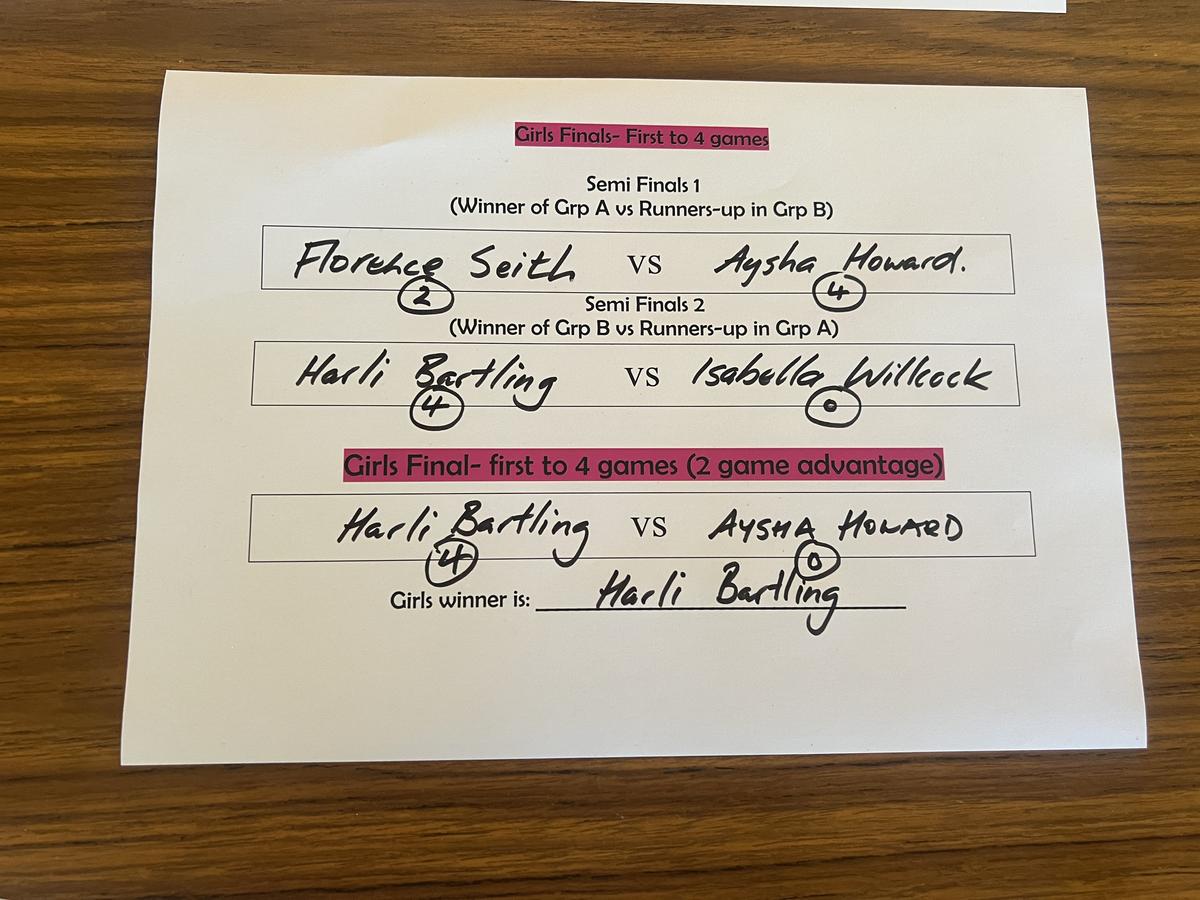 Girls Finals- First to 4 games
Semi Finals 1
(Winner of Grp A vs Runners-up in Grp B)
Florence Seith VS Aysha Howard.
2 4
Semi Finals 2
(Winner of Grp B vs Runners-up in Grp A)
Harli Bartling VS Isabella Willcock
4 0
Girls Final- first to 4 games (2 game advantage)
Harli Bartling VS AYSHA HOWARD
4 0
Girls winner is: Harli Bartling